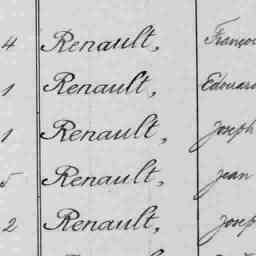 4 Renault, Françoi
1 Renault, Edouard
1 Renault, Joseph
5 Renault, Jean
2 Renault, Josep